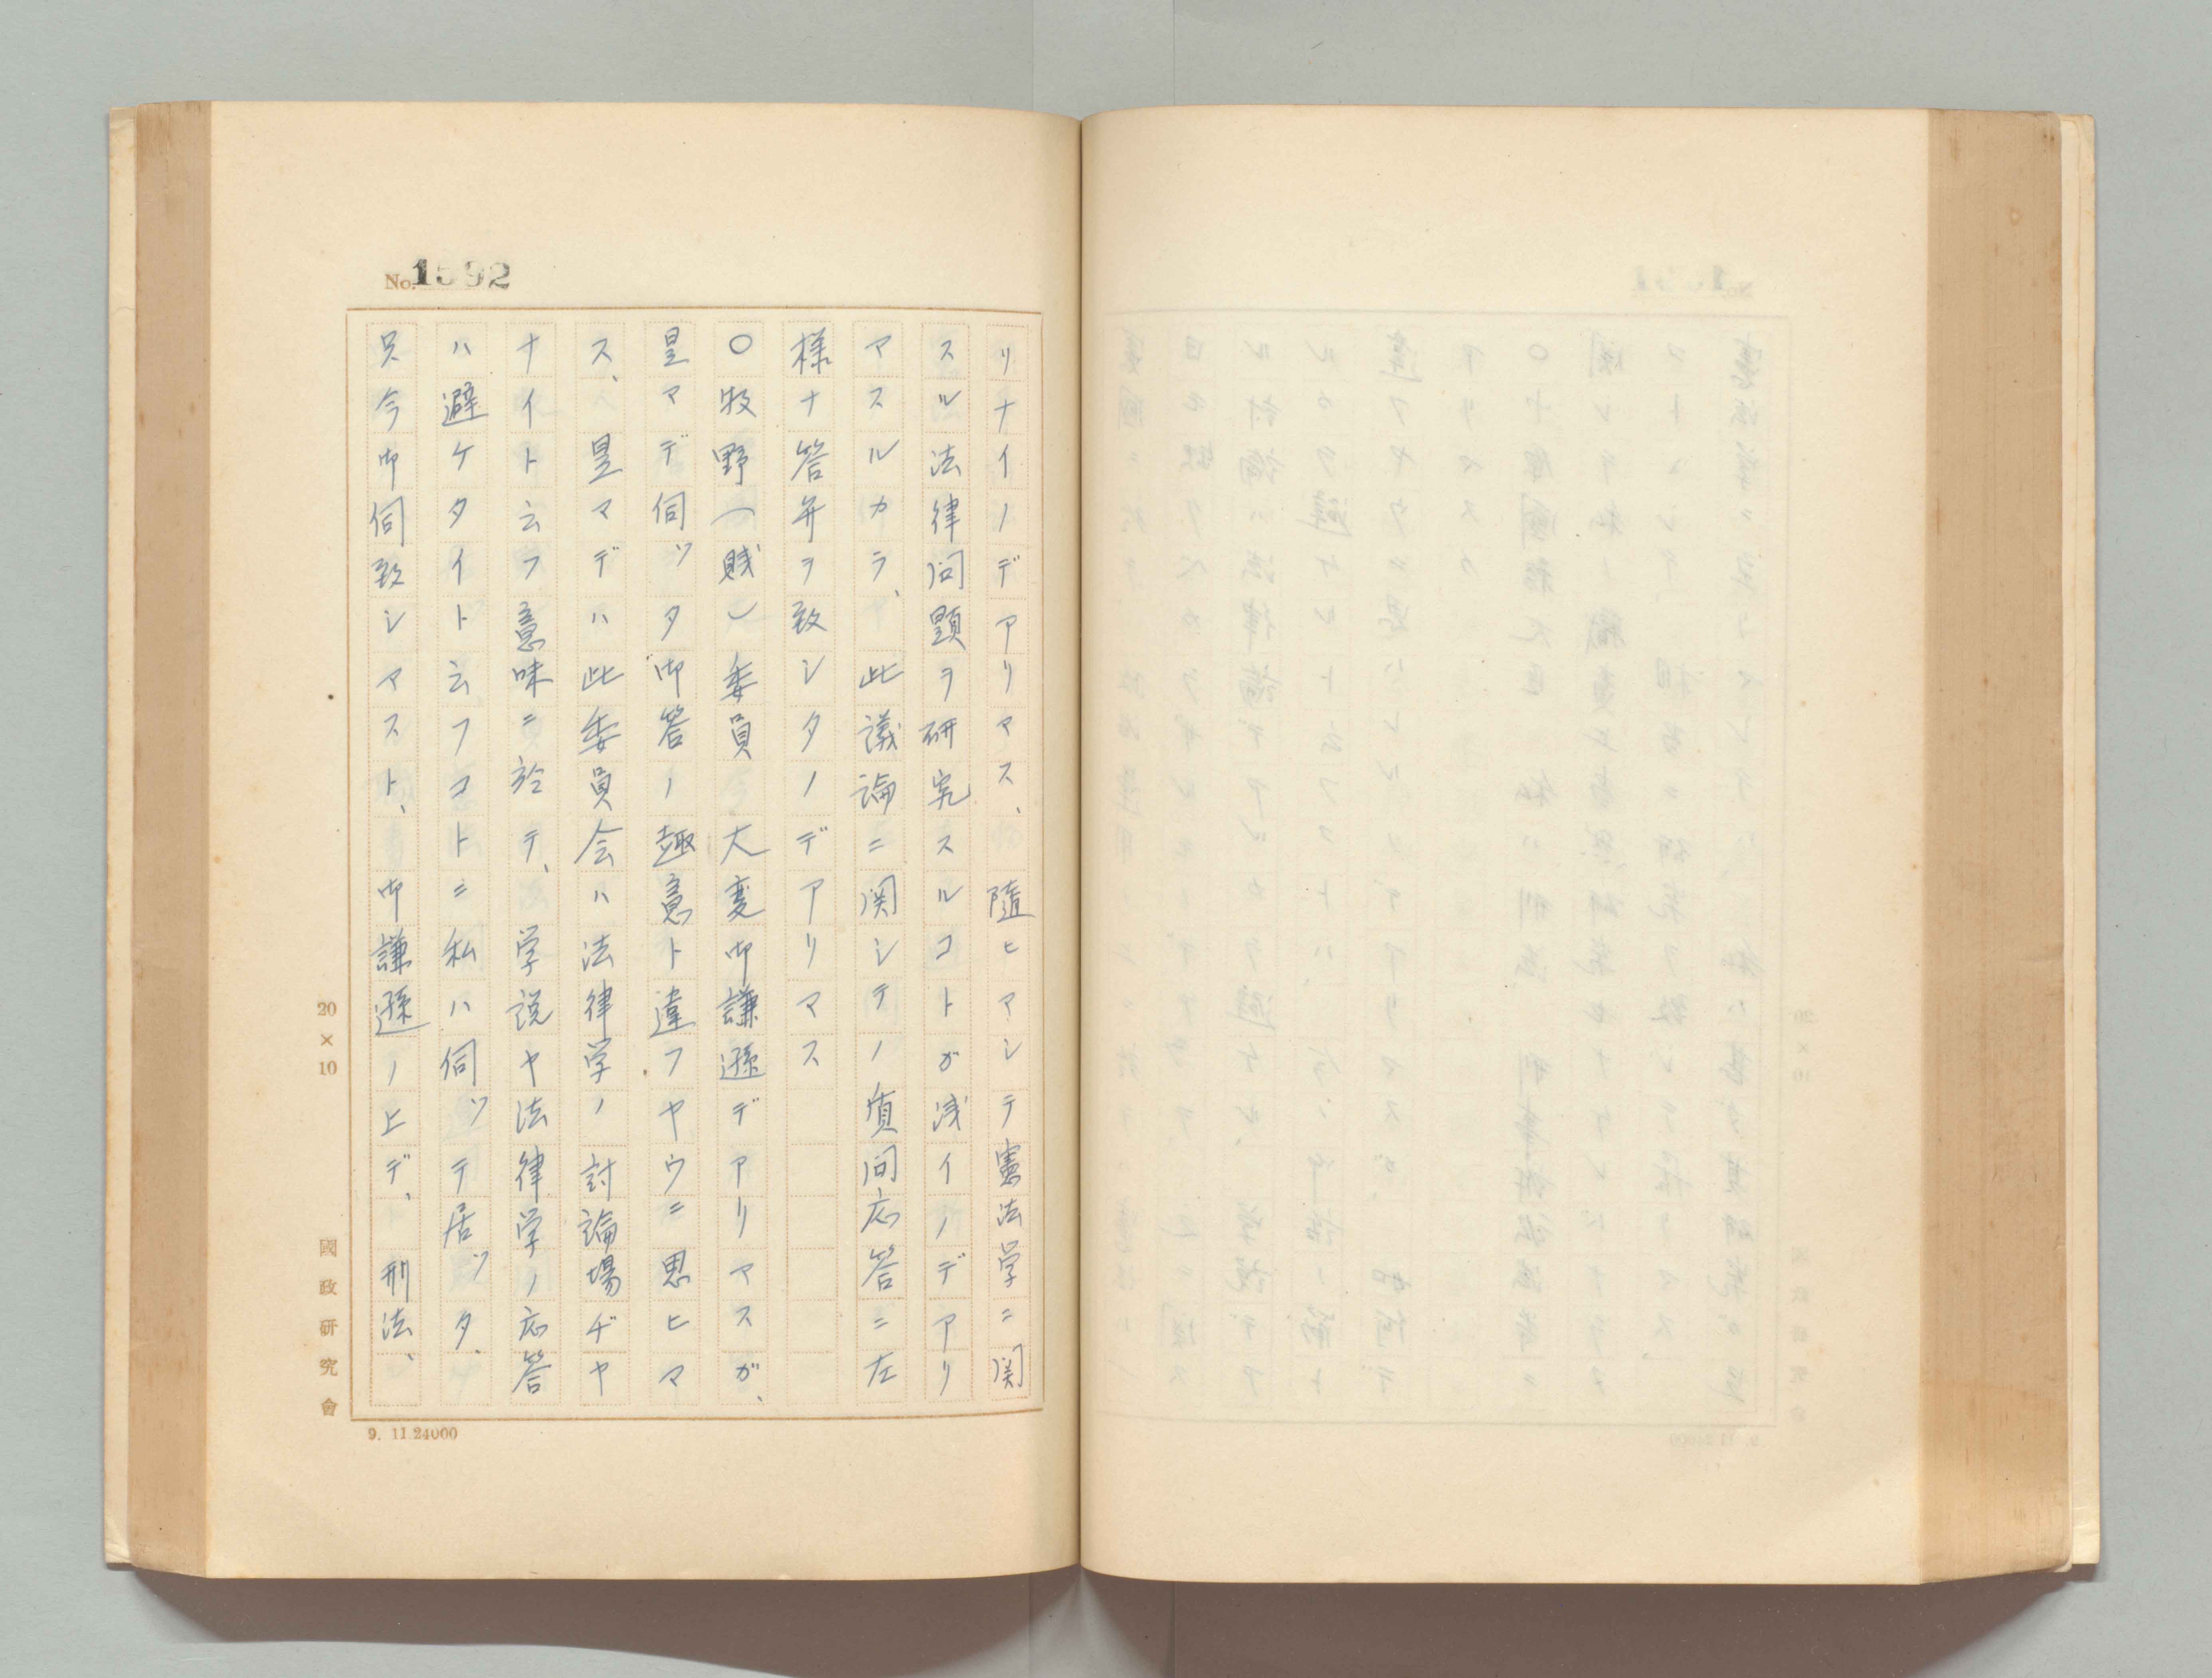 No.1592
リナイノデアリマス、隨ヒマシテ憲法学ニ関
スル法律问題ヲ研究スルコトガ浅イノデアリ
マスルカラ、此議論ニ関シテノ質问応答ニ左
様ナ答弁ヲ致シタノデアリマス
〇牧野(賤)委員 大変御謙遜デアリマスガ、
是マデ伺ッタ御答ノ趣意ト違フヤウニ思ヒマ
ス、是マデハ此委員会ハ法律学ノ討論場ヂヤ
ナイト云フ意味ニ於テ、学説ヤ法律学ノ応答
ハ避ケタイト云フコトニ私ハ伺ッテ居ッタ、
只今御伺致シマスト、御謙遜ノ上デ、刑法、
20×10
國政研究會
9. 11.24000